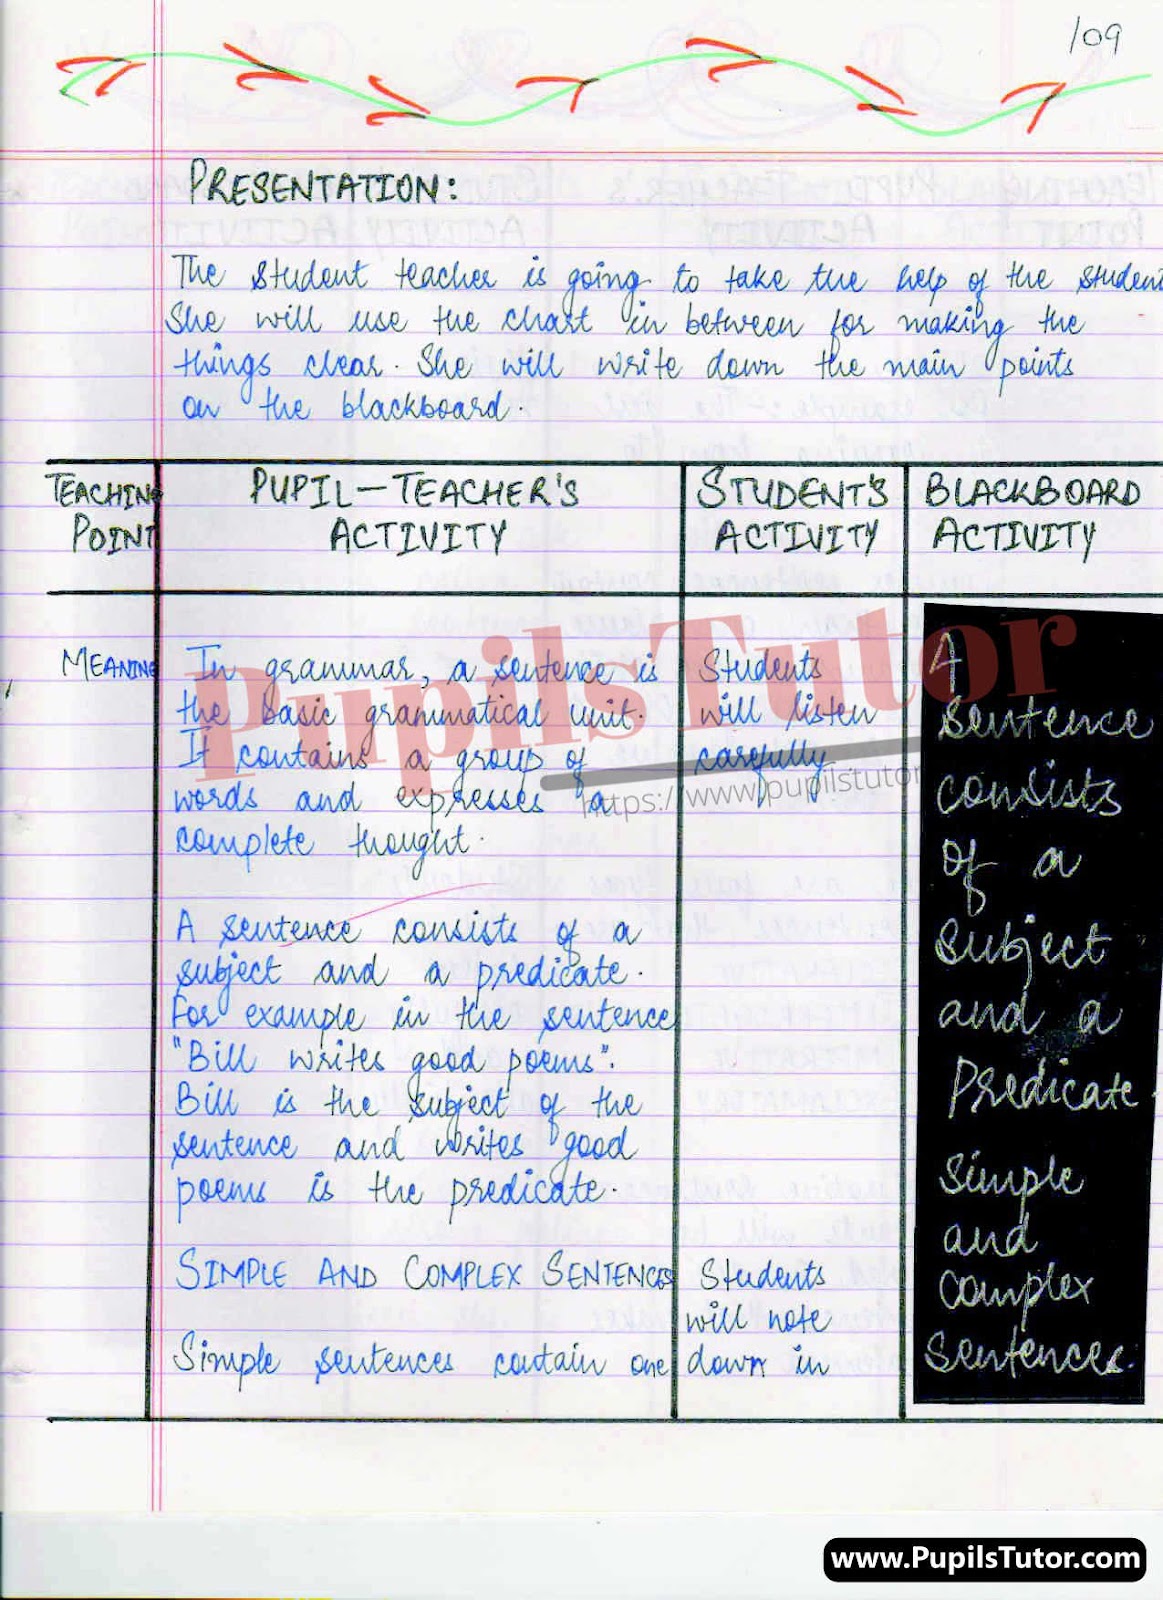 109
PRESENTATION:
The student teacher is going to take the help of the student
She will use the chart in between for making the
things clear. She will write down the main points
on the blackboard.
TEACHING
POINT
PUPIL-TEACHER'S
ACTIVITY
STUDENT'S
ACTIVITY
BLACKBOARD
ACTIVITY
MEANING
In grammar, a sentence is
the basic grammatical unit.
It contains a group of
words and expresses a
complete thought.
A sentence consists of a
subject and a predicate.
For example in the sentence
"Bill writes good poems".
Bill is the subject of the
sentence and writes good
poems is the predicate.
SIMPLE AND COMPLEX SENTENCES
Simple sentences contain one
Students
will listen
carefully
Students
will note
down in
A
sentence
consists
of a
subject
and a
Predicate.
Simple
and
complex
sentences.
PupilsTutor
https://www.pupilstutor
www.PupilsTutor.com